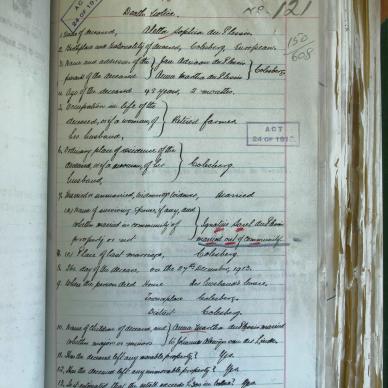 Death Notice.
No. 121
ACT
24 OF 19
150
608
1. Name of deceased, Aletta Sophia du Plessis
2. Birthplace and nationality of deceased, Colesberg European.
3. Name and addresses of the Jan Adriaan du Plessis
parents of the deceased Anna Martha du Plessis Colesberg
4. Age of the deceased 42 years, 2 months.
5. Occupation in life of the
deceased, or if a woman, of Retired farmer
her husband,
ACT
24 OF 191
6. Ordinary place of residence of the
deceased, or if a woman, of her Colesberg
husband,
7. Married or unmarried, widower or widow, Married
(a) Name of surviving spouse if any, and
whether married in community of Ignatius du Plessis
property or not married out of community
(c) Place of last marriage, Colesberg
8. The day of the decease on the 27th December, 1913.
9. Where the person died House du Husbands house,
Town or place Colesberg,
District Colesberg.
10. Names of children of deceased, and Anna Martha du Plessis married
whether majors or minors to Johannes van der Linde
11. Has the deceased left any movable property? Yes
12. Has deceased left any immovable property? Yes.
13. Is it estimated that the estate exceeds £300 in value? Yes